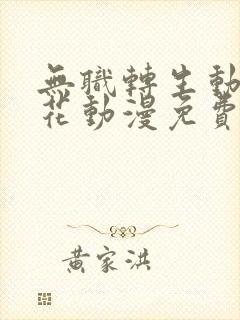 無職轉生動
花動漫免費
黃家洪